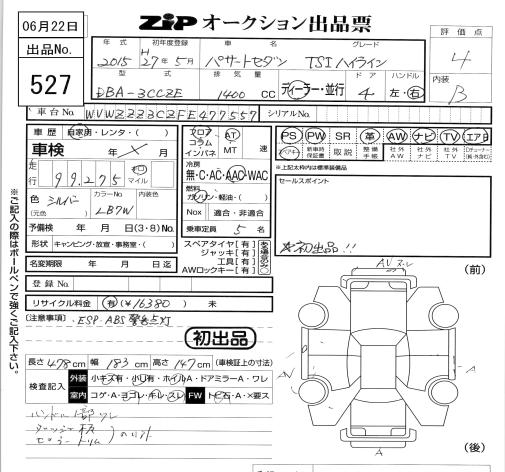 06月22日
出品No.
527
ZIP オークション出品票
年式 初年度登録 車名 グレード
2015 H27年5月 パサートセダン TSIハイライン
型式 排気量 ドア ハンドル
DBA-3CCZE 1400 CC ディーラー・並行 4 左・右
評価点
4
内装
B
車台No. WVWZZZ3CZFE477557 シリアルNo.
車歴 自家用・レンタ・( )
車検 年 × 月
走行 99,275 キロ マイル
色 シルバー カラーNo. LB7W 内装色
(元色)
予備検 年 月 日(3・8)No.
形状 キャンピング・放習・事務室・( )
名変期限 年 月 日迄
登録No.
リサイクル料金 有(¥16380) 未
フロア コラム インパネ AT MT 速
冷房
無・C・AC・AAC・WAC
燃料
ガソリン・軽油・( )
Nox 適合・非適合
乗車定員 5 名
スペアタイヤ[有]
ジャッキ[有]
工具[有]
AWロックキー[有]
ある場合のみ○
PS PW SR 革 AW ナビ TV エアB
新車時保証書 取説 整備手帳 社外AW 社外ナビ 社外TV
※上記太枠内は標準装備品
セールスポイント
※初出品!!
※ご記入の際はボールペンで強くご記入下さい。
(注意事項) ESP ABS警告点灯
初出品
長さ 478cm 幅 183cm 高さ 147cm (車検証上の寸法)
検査記入 外装 小キズ有・小凹有・ホイルA・ドアミラーA・ワレ
室内 コゲ・A・ヨゴレ・キレ・スレ FW トビ石・A・×要ス
ハンドル
(前)
(後)
A
A